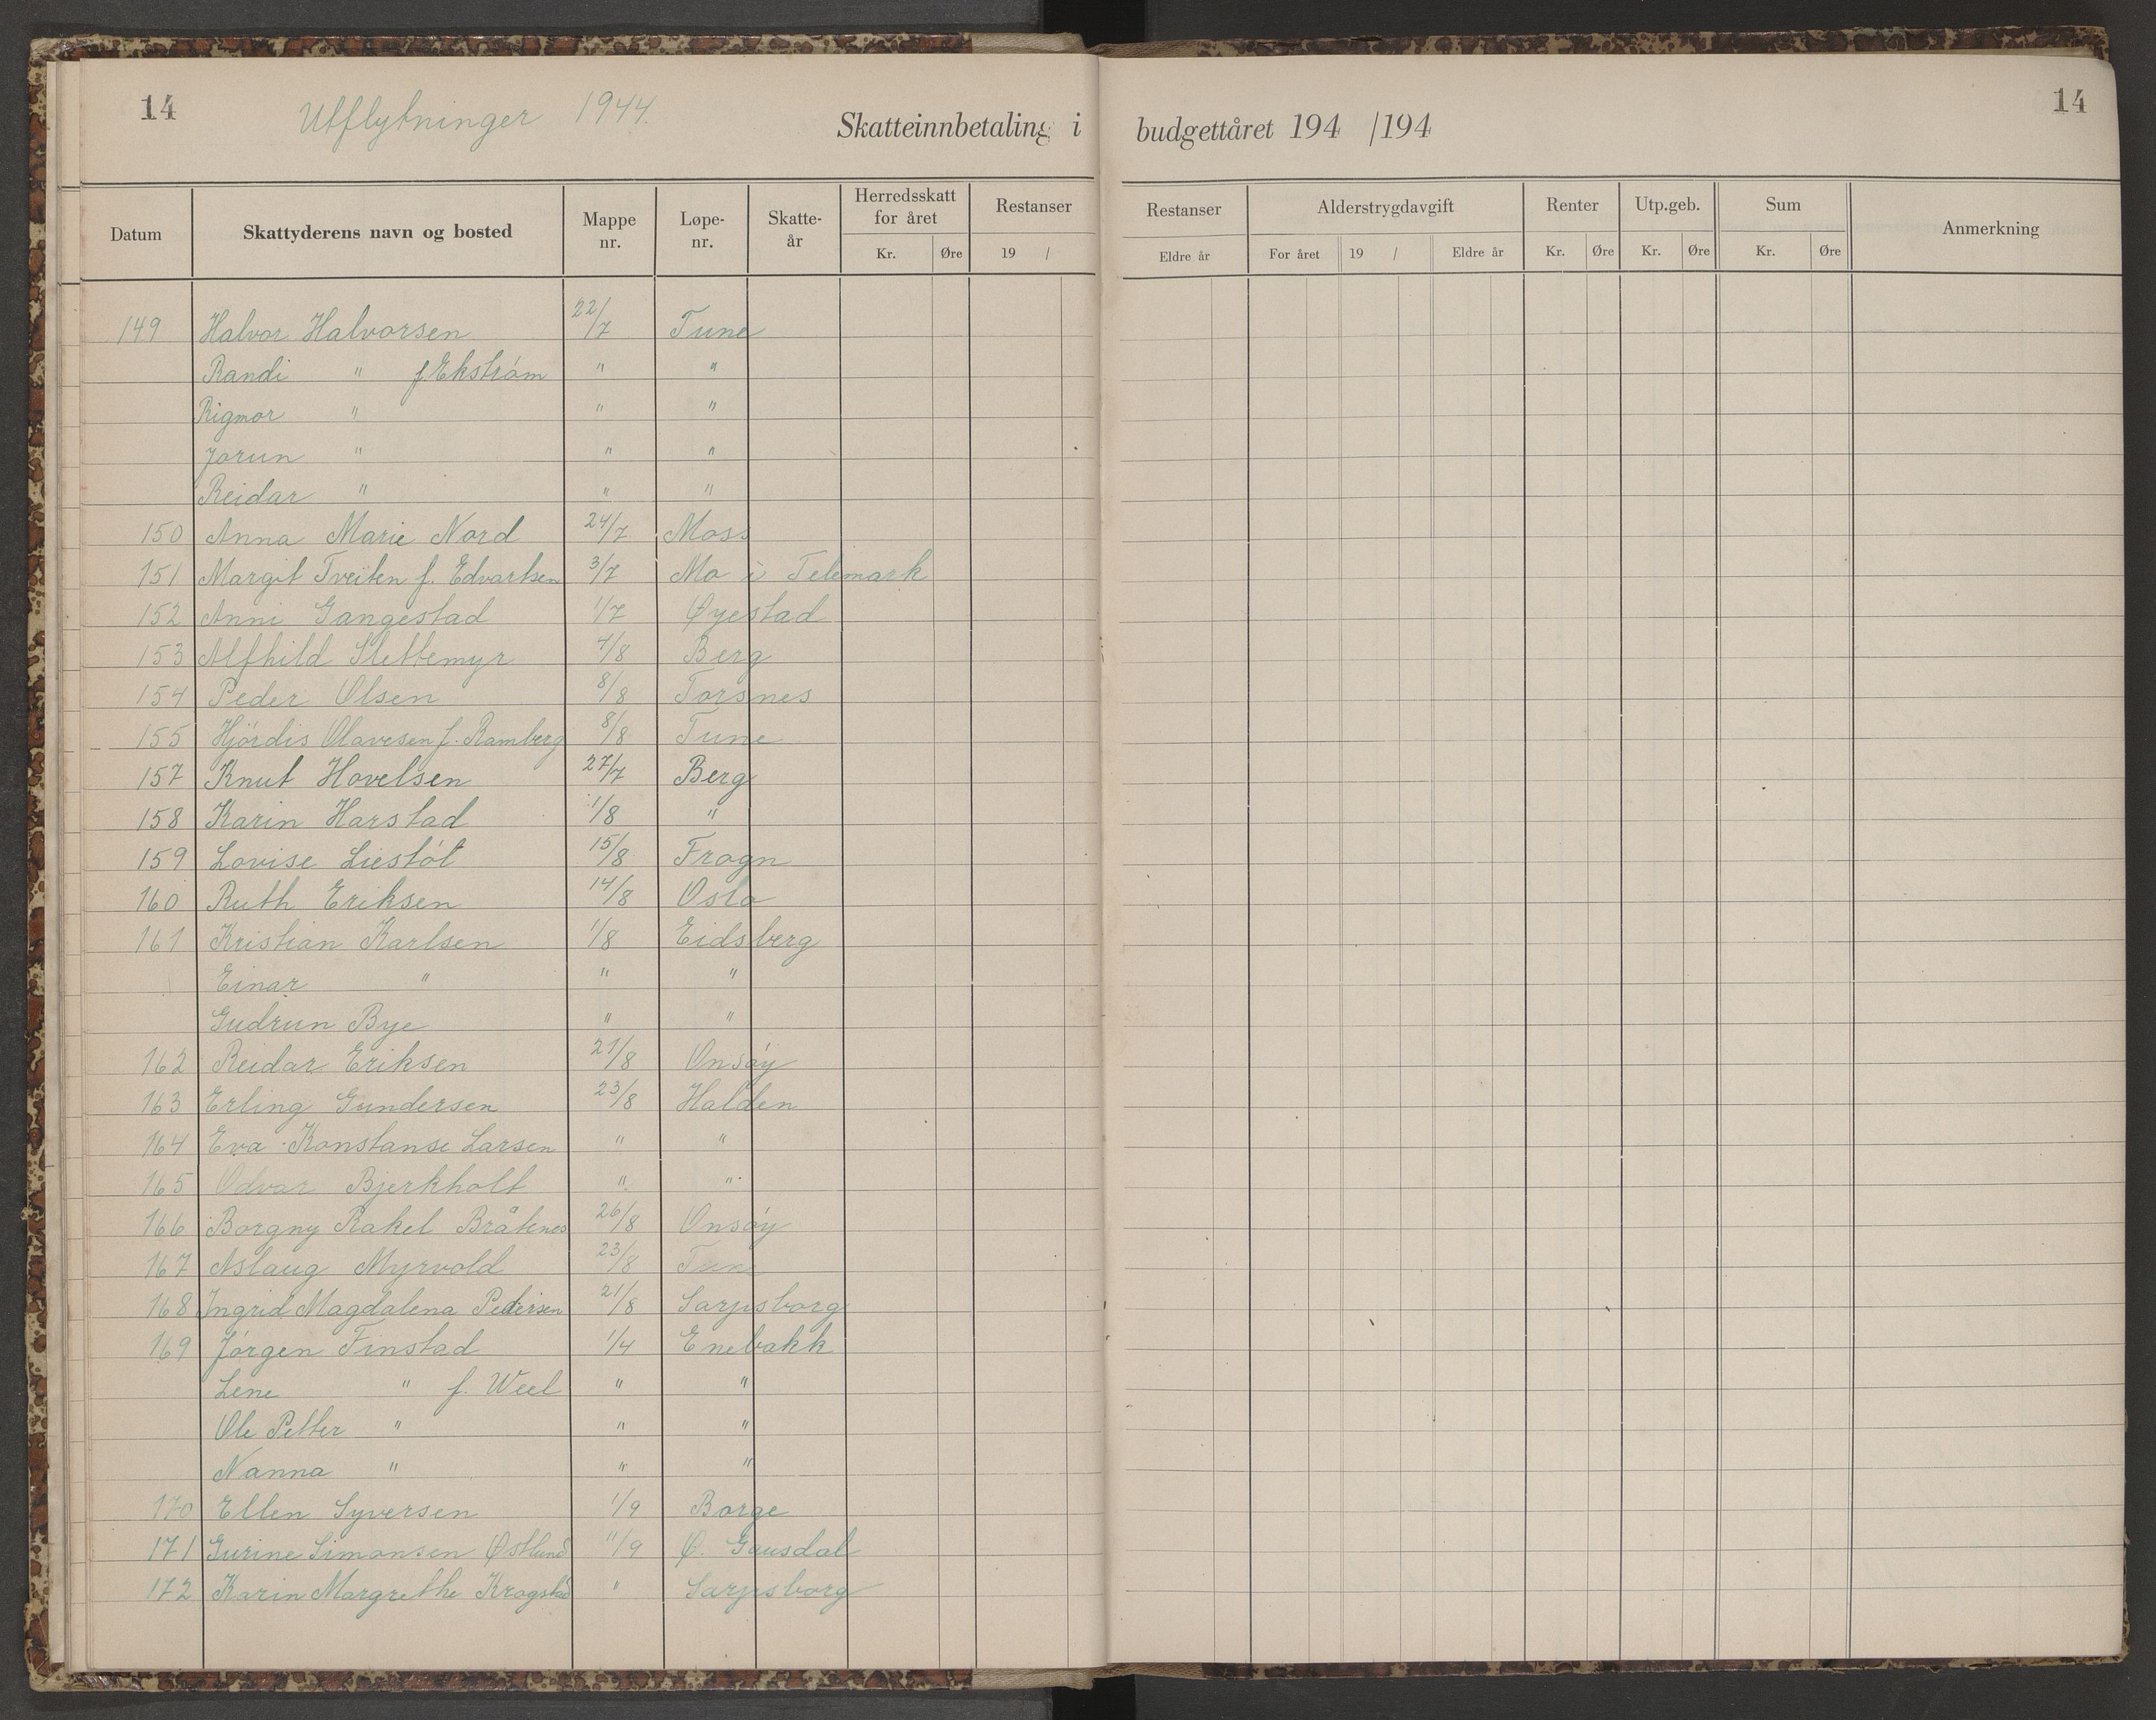 14 Utflytninger 1944. 14
Skatteinnbetaling i budgettåret 194 /194
Datum Skattyderens navn og bosted Mappe nr. Løpe-nr. Skatte-år Herredsskatt for året Kr. Øre Restanser 19 / Restanser Eldre år Alderstrygdavgift For året 19 / Eldre år Renter Kr. Øre Utp.geb. Kr. Øre Sum Kr. Øre Anmerkning
149 Halvor Halvorsen 22/7 Tune
Randi " f. Ekstróm " "
Rigmor " " "
Jorun " " "
Reidar " " "
150 Anna Marie Nord 24/7 Moss
151 Margit Tveiten f. Edvartsen 3/7 Mo i Telemark
152 Anni Gangestad 1/7 Øyestad
153 Alfhild Slettemyr 4/8 Berg
154 Peder Olsen 8/8 Torsnes
155 Hjördis Olavesen f. Ramberg 8/8 Tune
157 Knut Hovelsen 27/7 Berg
158 Karin Harstad 1/8 "
159 Lovise Liestól 15/8 Frogn
160 Ruth Eriksen 14/8 Oslo
161 Kristian Karlsen 1/8 Eidsberg
Einar " " "
Gudrun Bye " "
162 Reidar Eriksen 21/8 Onsóy
163 Erling Gundersen 23/8 Halden
164 Eva Konstanse Larsen " "
165 Odvar Bjerkholt " "
166 Borgny Rakel Bråtenes 26/8 Onsóy
167 Aslaug Myrvold 23/8 Tune
168 Ingrid Magdalena Pedersen 21/8 Sarpsborg
169 Jórgen Finstad 1/4 Enebakk
Lene " f. Weel " "
Ole Petter " " "
Nanna " " "
170 Ellen Syversen 1/9 Borge
171 Gurine Simonsen Østlund 11/9 Ø. Gausdal
172 Karin Margrethe Krogstad " Sarpsborg